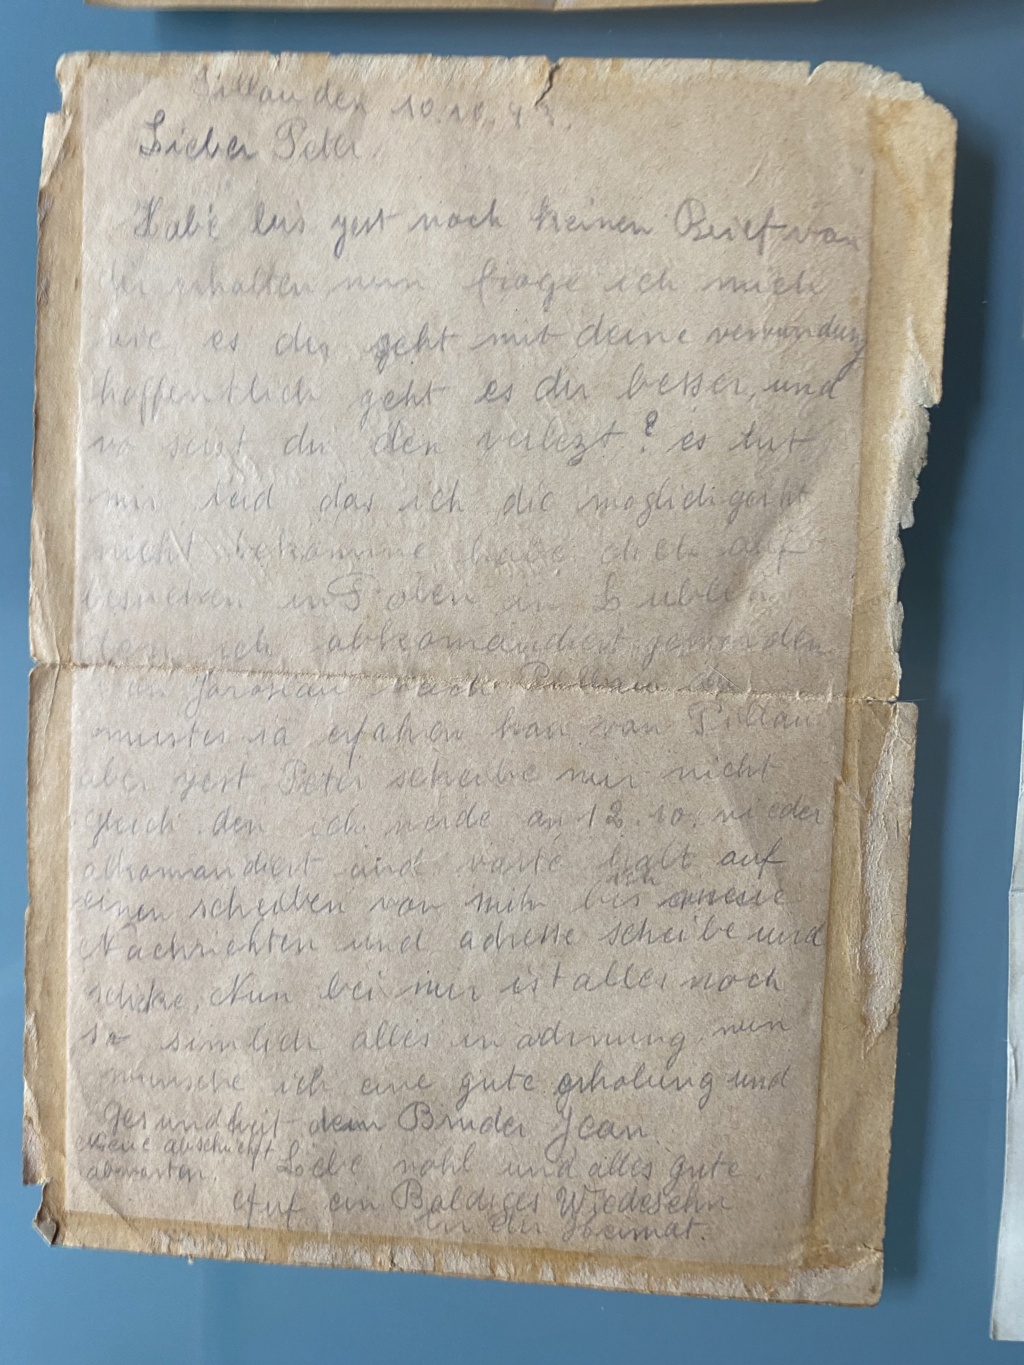 Pillau den 10.10.43.
Lieber Peter
Habe bis yest noch keinen Brief von
dir erhalten nun frage ich mich
wie es dir geht mit deine verwundung
hoffentlich geht es dir besser, und
wo seist du den verlezt? es tut
mir leid das ich die moglichgeiht
nicht bekomme habe dich auf
besuchen in Polen in Lublin
bin ich abkomandiert geworden
von Jaroslau nach Pillau
muste ja erfahren von Pillau
aber yest Peter scheibe mir nicht
gleich den ich werde an 12.10. wieder
abkomandiert und varte halt auf
einen scheiben von mihr bis ich neue
Nachrichten und adresse scheibe und
schike, Nun bei mir ist alles noch
so simlich alles in ordnung nun
wünsche ich eine gute erholung und
Gesundheit dein Bruder Jean.
Meine abschrift
abwarten. Lebe wohl und alles gute
Auf ein Baldiges Wiedesehn
in der Heimat.